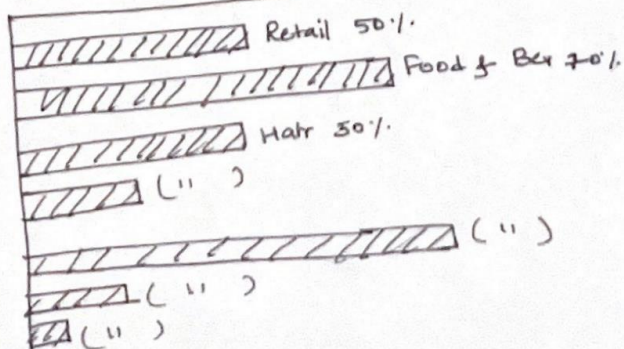 Retail 50%.
Food & Bev 70%.
Hair 50%.
( " )
( " )
( " )
( " )